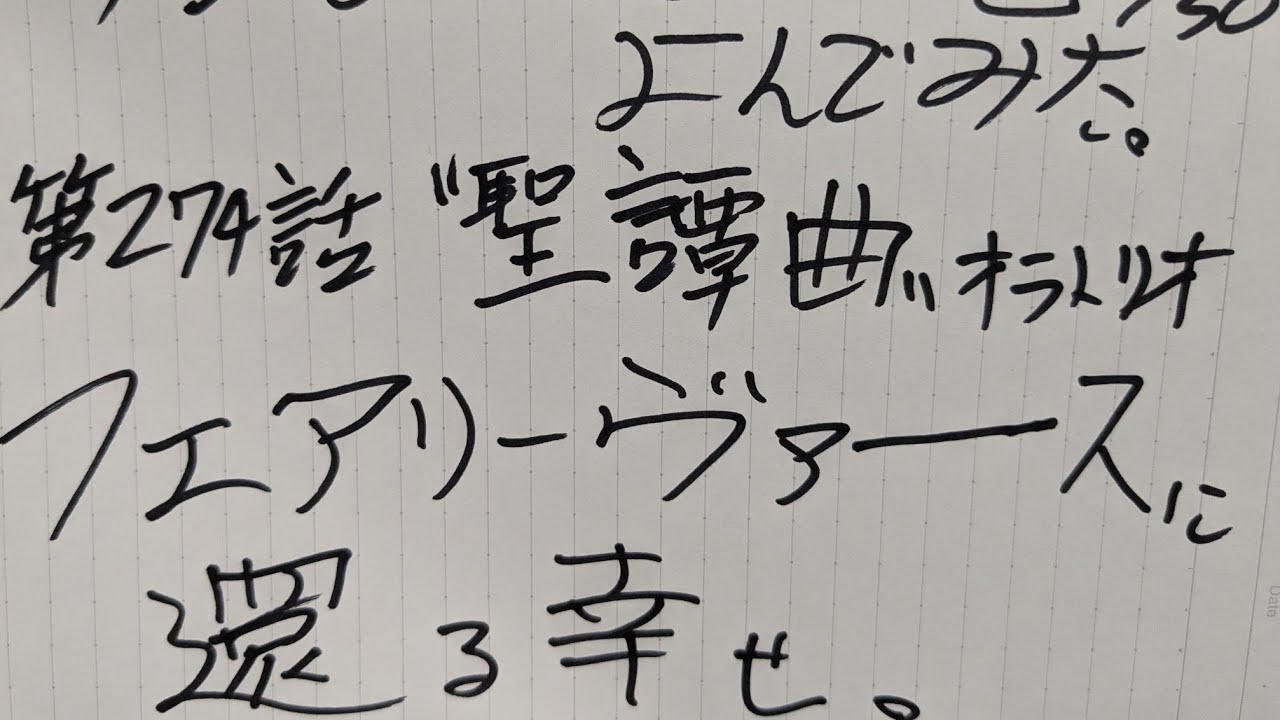 よんでみた。
第274話 "聖譚曲" オラトリオ
フェアリーヴァースに
還る幸せ。
Date